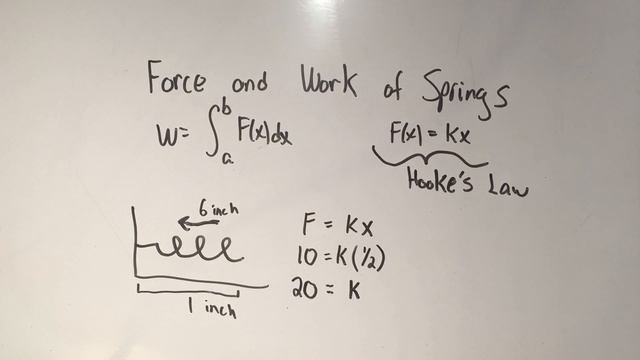 Force and Work of Springs
W = ∫ₐᵇ F(x)dx
F(x) = Kx
Hooke's Law
6 inch
1 inch
F = Kx
10 = K(1/2)
20 = K